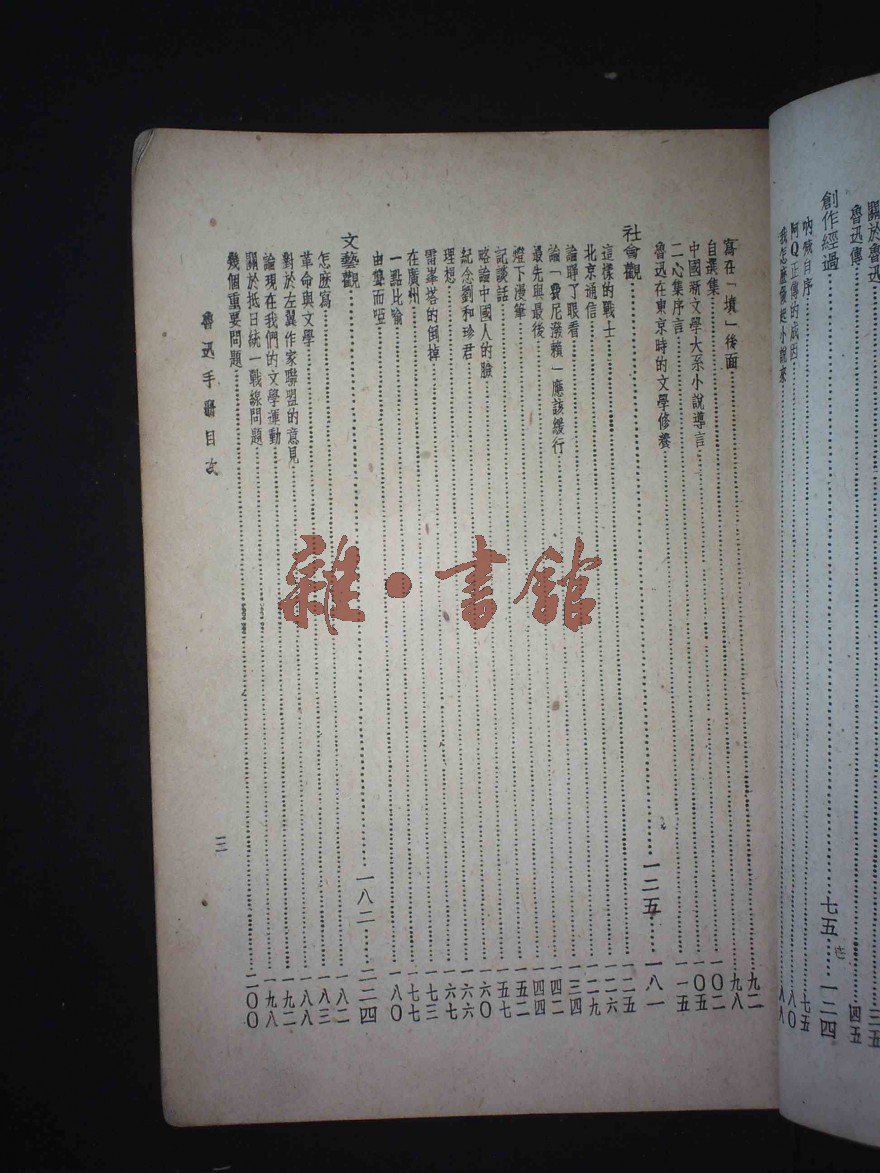 關於魯迅……三五
魯迅傳……四五
創作經過……七五……一二四
吶喊自序……七五
阿Q正傳的成因……八〇
我怎麼做起小說來……八八
寫在「墳」後面……九二
自選集……九八
中國新文學大系小說導言……一〇二
二心集序言……一〇五
魯迅在東京時的文學修養……一一五
社會觀……一二五……一八一
這樣的戰士……一二五
北京通信……一二六
論睜了眼看……一二九
論「費尼潑賴」應該緩行……一三四
最先與最後……一四二
燈下漫筆……一四四
記談話……一五二
略論中國人的臉……一五七
紀念劉和珍君……一六〇
理想……一六六
雷峯塔的倒掉……一六七
在廣州……一七三
一點比喻……一七七
由聾而啞……一八〇
文藝觀……一八二……二二四
怎麽寫……一八二
革命與文學……一八三
對於左翼作家聯盟的意見……一八八
論現在我們的文學運動……一九二
關於抵日統一戰線問題……一九八
幾個重要問題……二〇〇
魯迅手冊目次
三
雜·書館